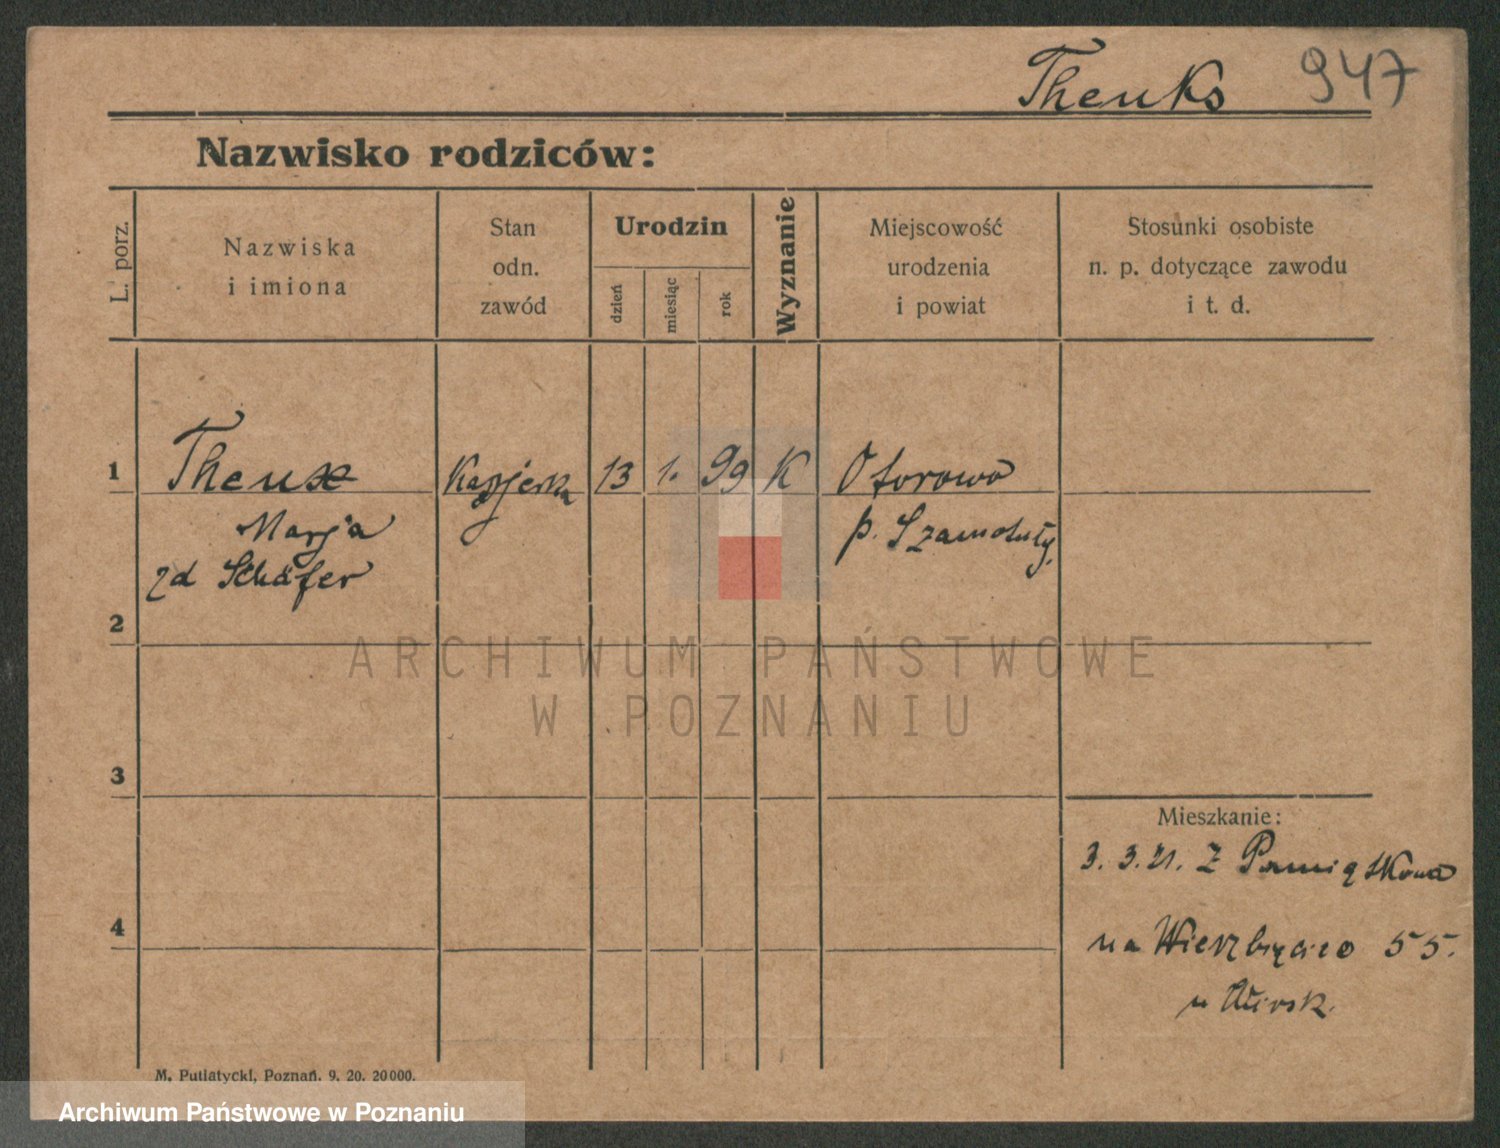 Theuks 947
Nazwisko rodziców:
L. porz.
Nazwiska
i imiona
Stan
odn.
zawód
Urodzin
dzień
miesiąc
rok
Wyznanie
Miejscowość
urodzenia
i powiat
Stosunki osobiste
n. p. dotyczące zawodu
i t. d.
1 Theux Kasjerka 13 1. 99 K Otorowo
Marja p. Szamotuły.
zd Schäfer
2
ARCHIWUM PAŃSTWOWE
W POZNANIU
3
Mieszkanie:
3. 3. 21. Z Pamiątkowa
4
na Wierzbięcice 55.
u
M. Putiatycki, Poznań. 9. 20. 20000.
Archiwum Państwowe w Poznaniu